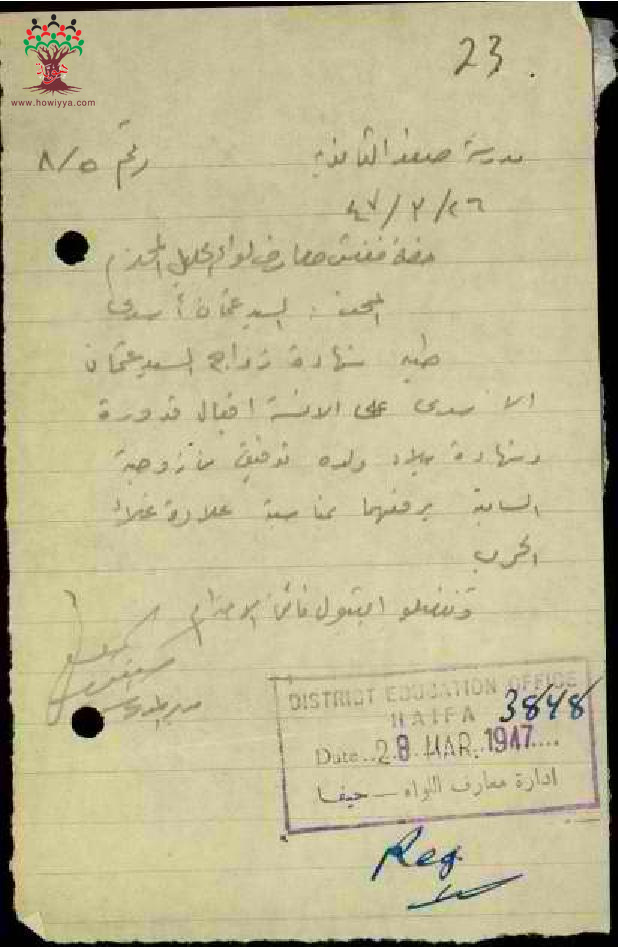 www.howiyya.com
23.
مدرسة صفد الثانوية رقم ٨/٥
٢٦/٣/٤٧
حضرة مفتش معارف لواء الجليل المحترم
المبحث : السيد عثمان أسدي
طيه شهادة زواج السيد عثمان
الاسدي على الانسة اقبال قدورة
وشهادة ميلاد ولده توفيق من زوجته
السابقة نرفقهما بمناسبة علاوة غلاء
الحرب
وتفضلوا بقبول فائق الاحترام
مدير المدرسة
DISTRICT EDUCATION OFFICE
HAIFA 3848
Date..28 MAR. 1947....
ادارة معارف اللواء — حيفا
Reg.